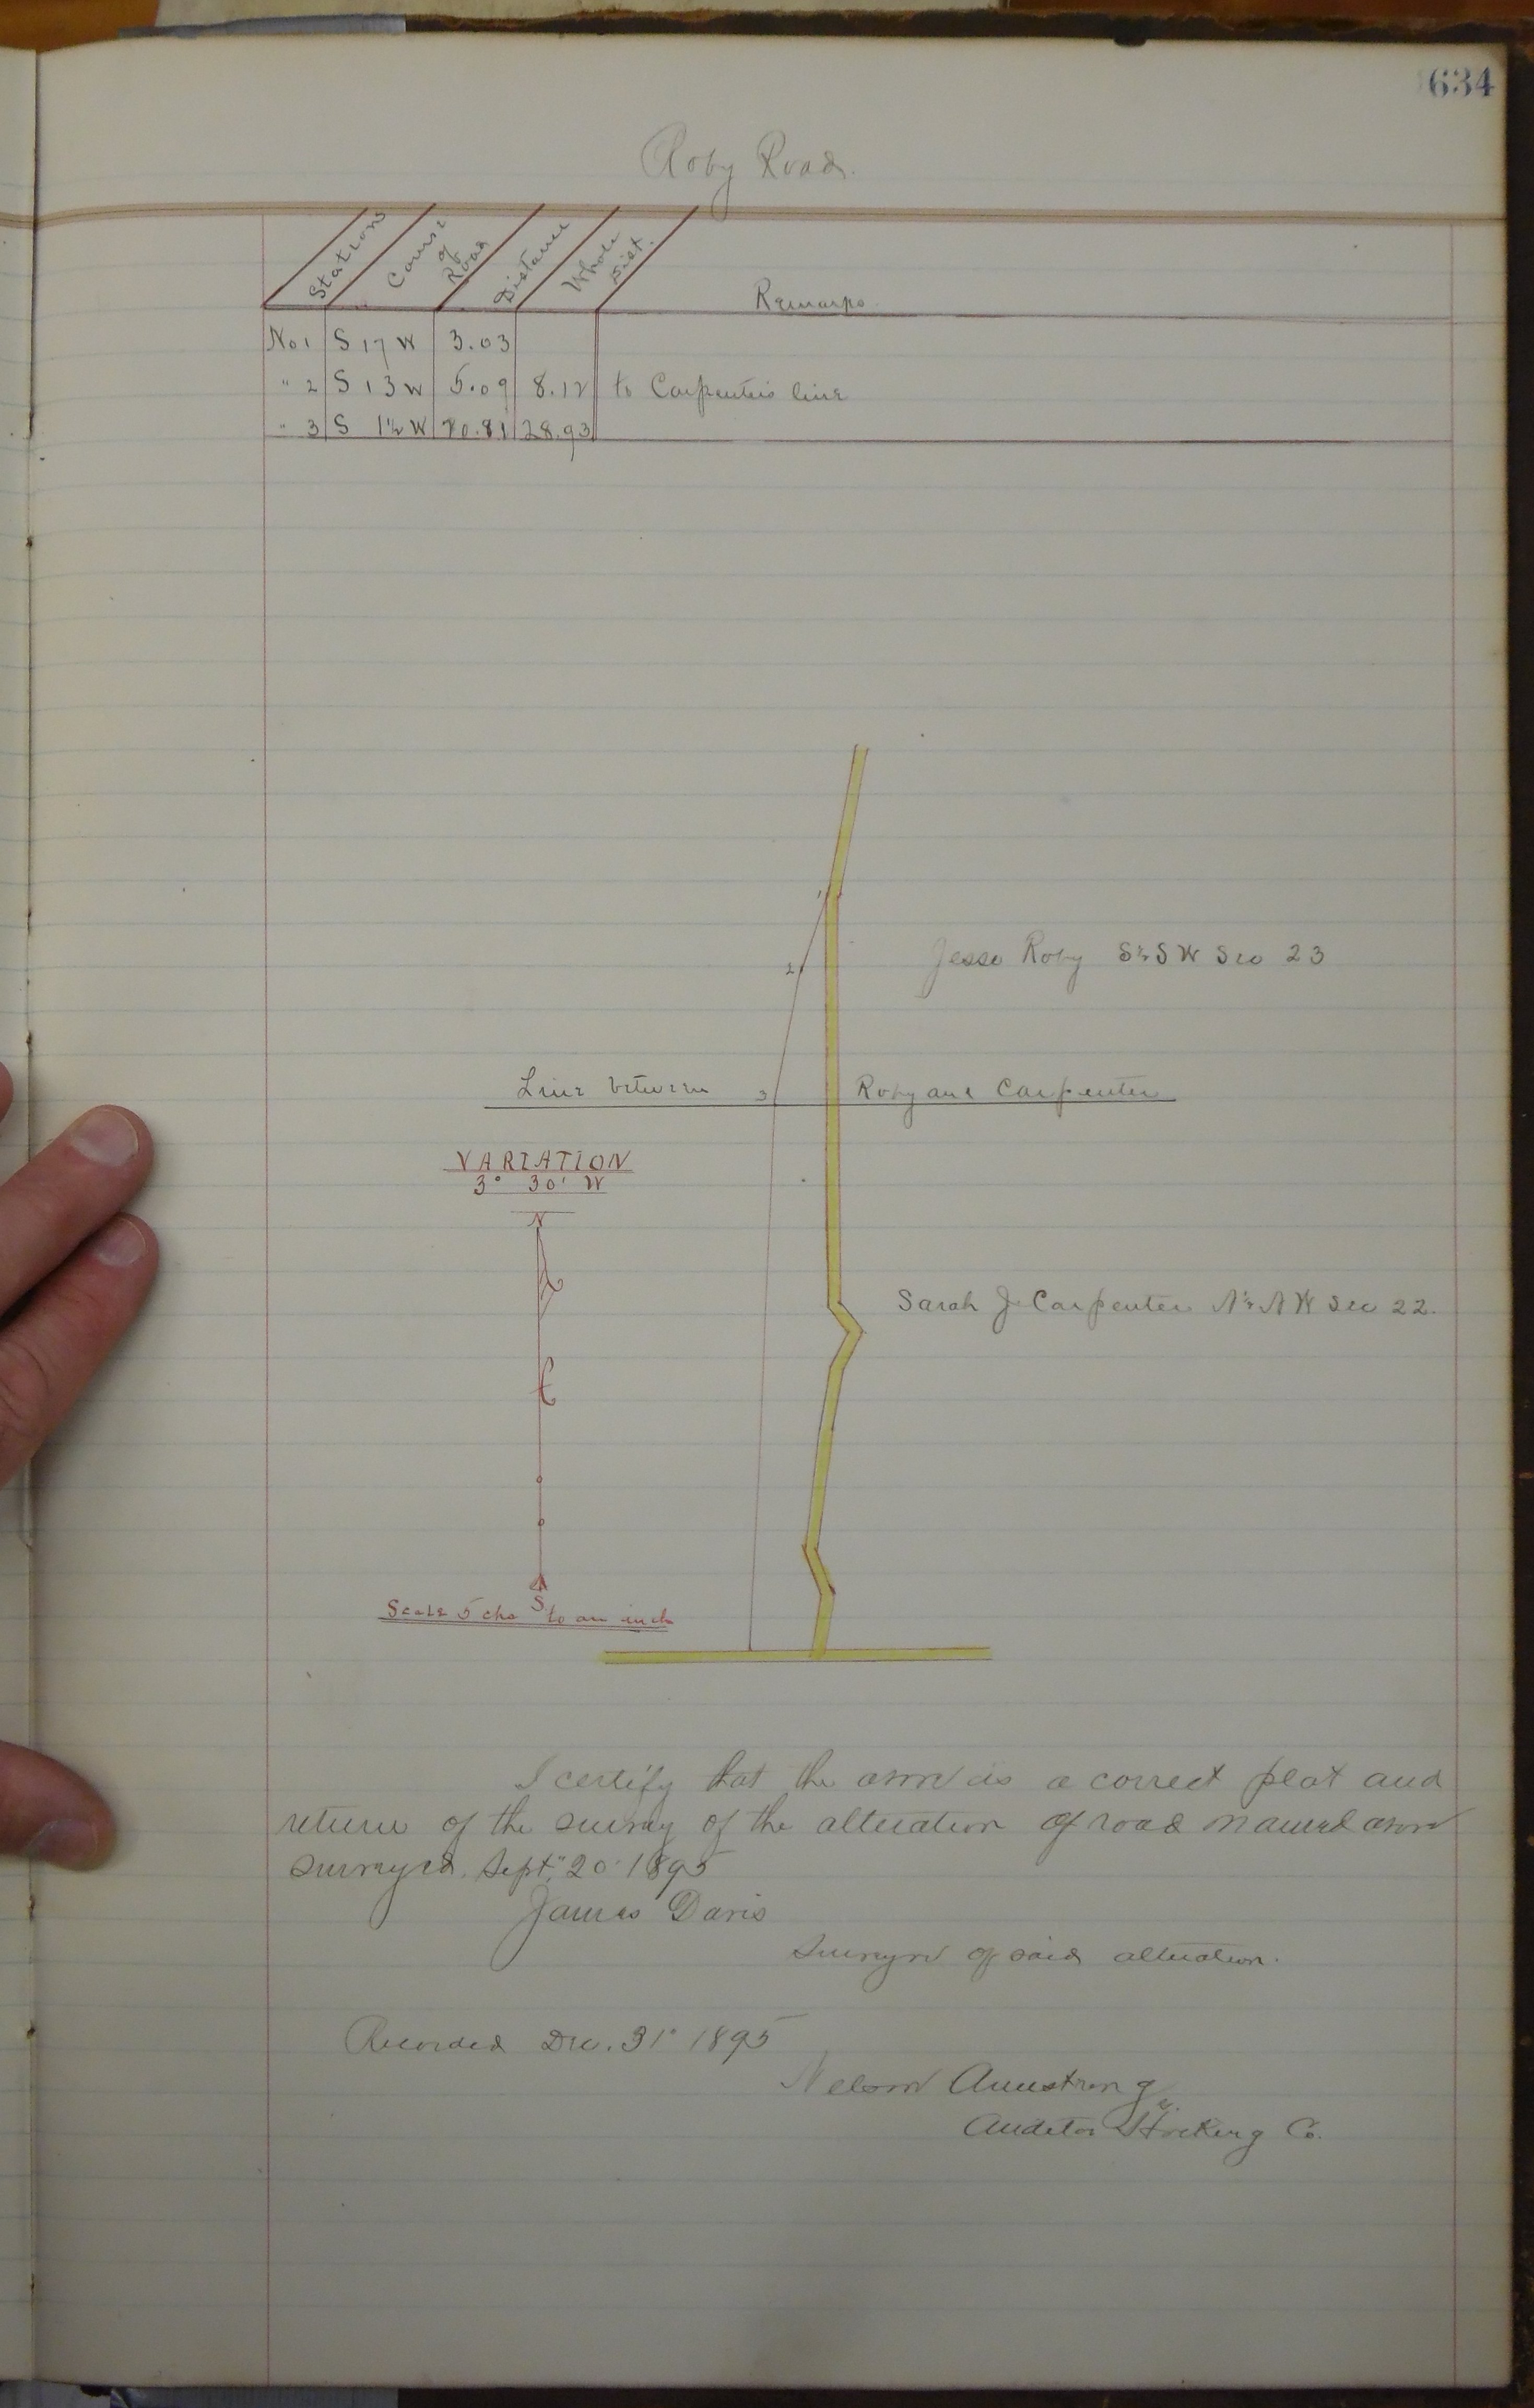 634
Roby Road.
Stations Course of Road Distance Whole Dist. Remarks
No 1 S 17 W 3.03
" 2 S 13 W 5.09 8.12 to Carpenters line
" 3 S 1½ W 20.81 28.93
1
Jesse Roby S½ S W Sec 23
2
Line between 3 Roby and Carpenter
VARIATION
3° 30' W
N
Sarah J Carpenter N½ N W Sec 22.
S
Scale 5 chs to an inch
I certify that the above is a correct plat and
return of the survey of the alteration of road named above
Surveyed. Sept. 20" 1895
James Davis
Surveyor of said alteration.
Recorded Dec. 31" 1895
Nelson Armstrong
Auditor Hocking Co.